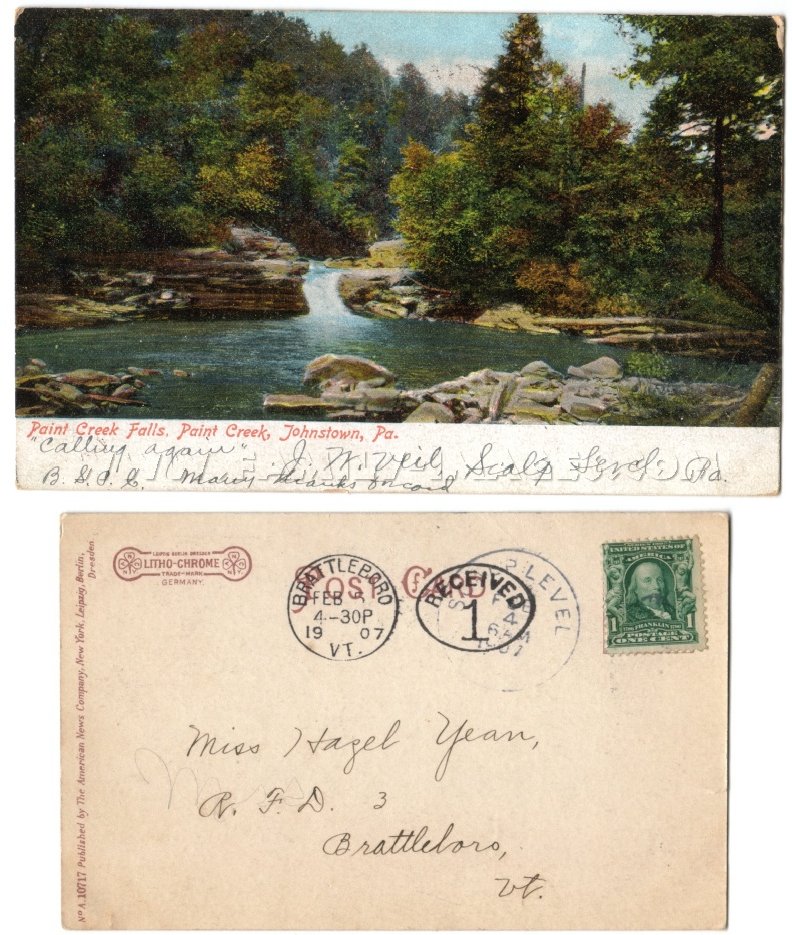 Paint Creek Falls. Paint Creek, Johnstown, Pa.
"Calling again" J. W. Veil, Scalp Level, Pa.
B. S. P. C. Many thanks for card
LEIPZIG BERLIN DRESDEN
LITHO-CHROME
TRADE-MARK
GERMANY.
POST CARD
BRATTLEBORO
FEB
4-30P
1907
VT.
RECEIVED
1
LEVEL
4
6 AM
1907
UNITED STATES OF AMERICA
FRANKLIN
1 POSTAGE 1
ONE CENT
Miss Hazel Yean,
R. F. D. 3
Brattleboro,
Vt.
No A. 10717 Published by The American News Company, New York, Leipzig, Berlin,
Dresden